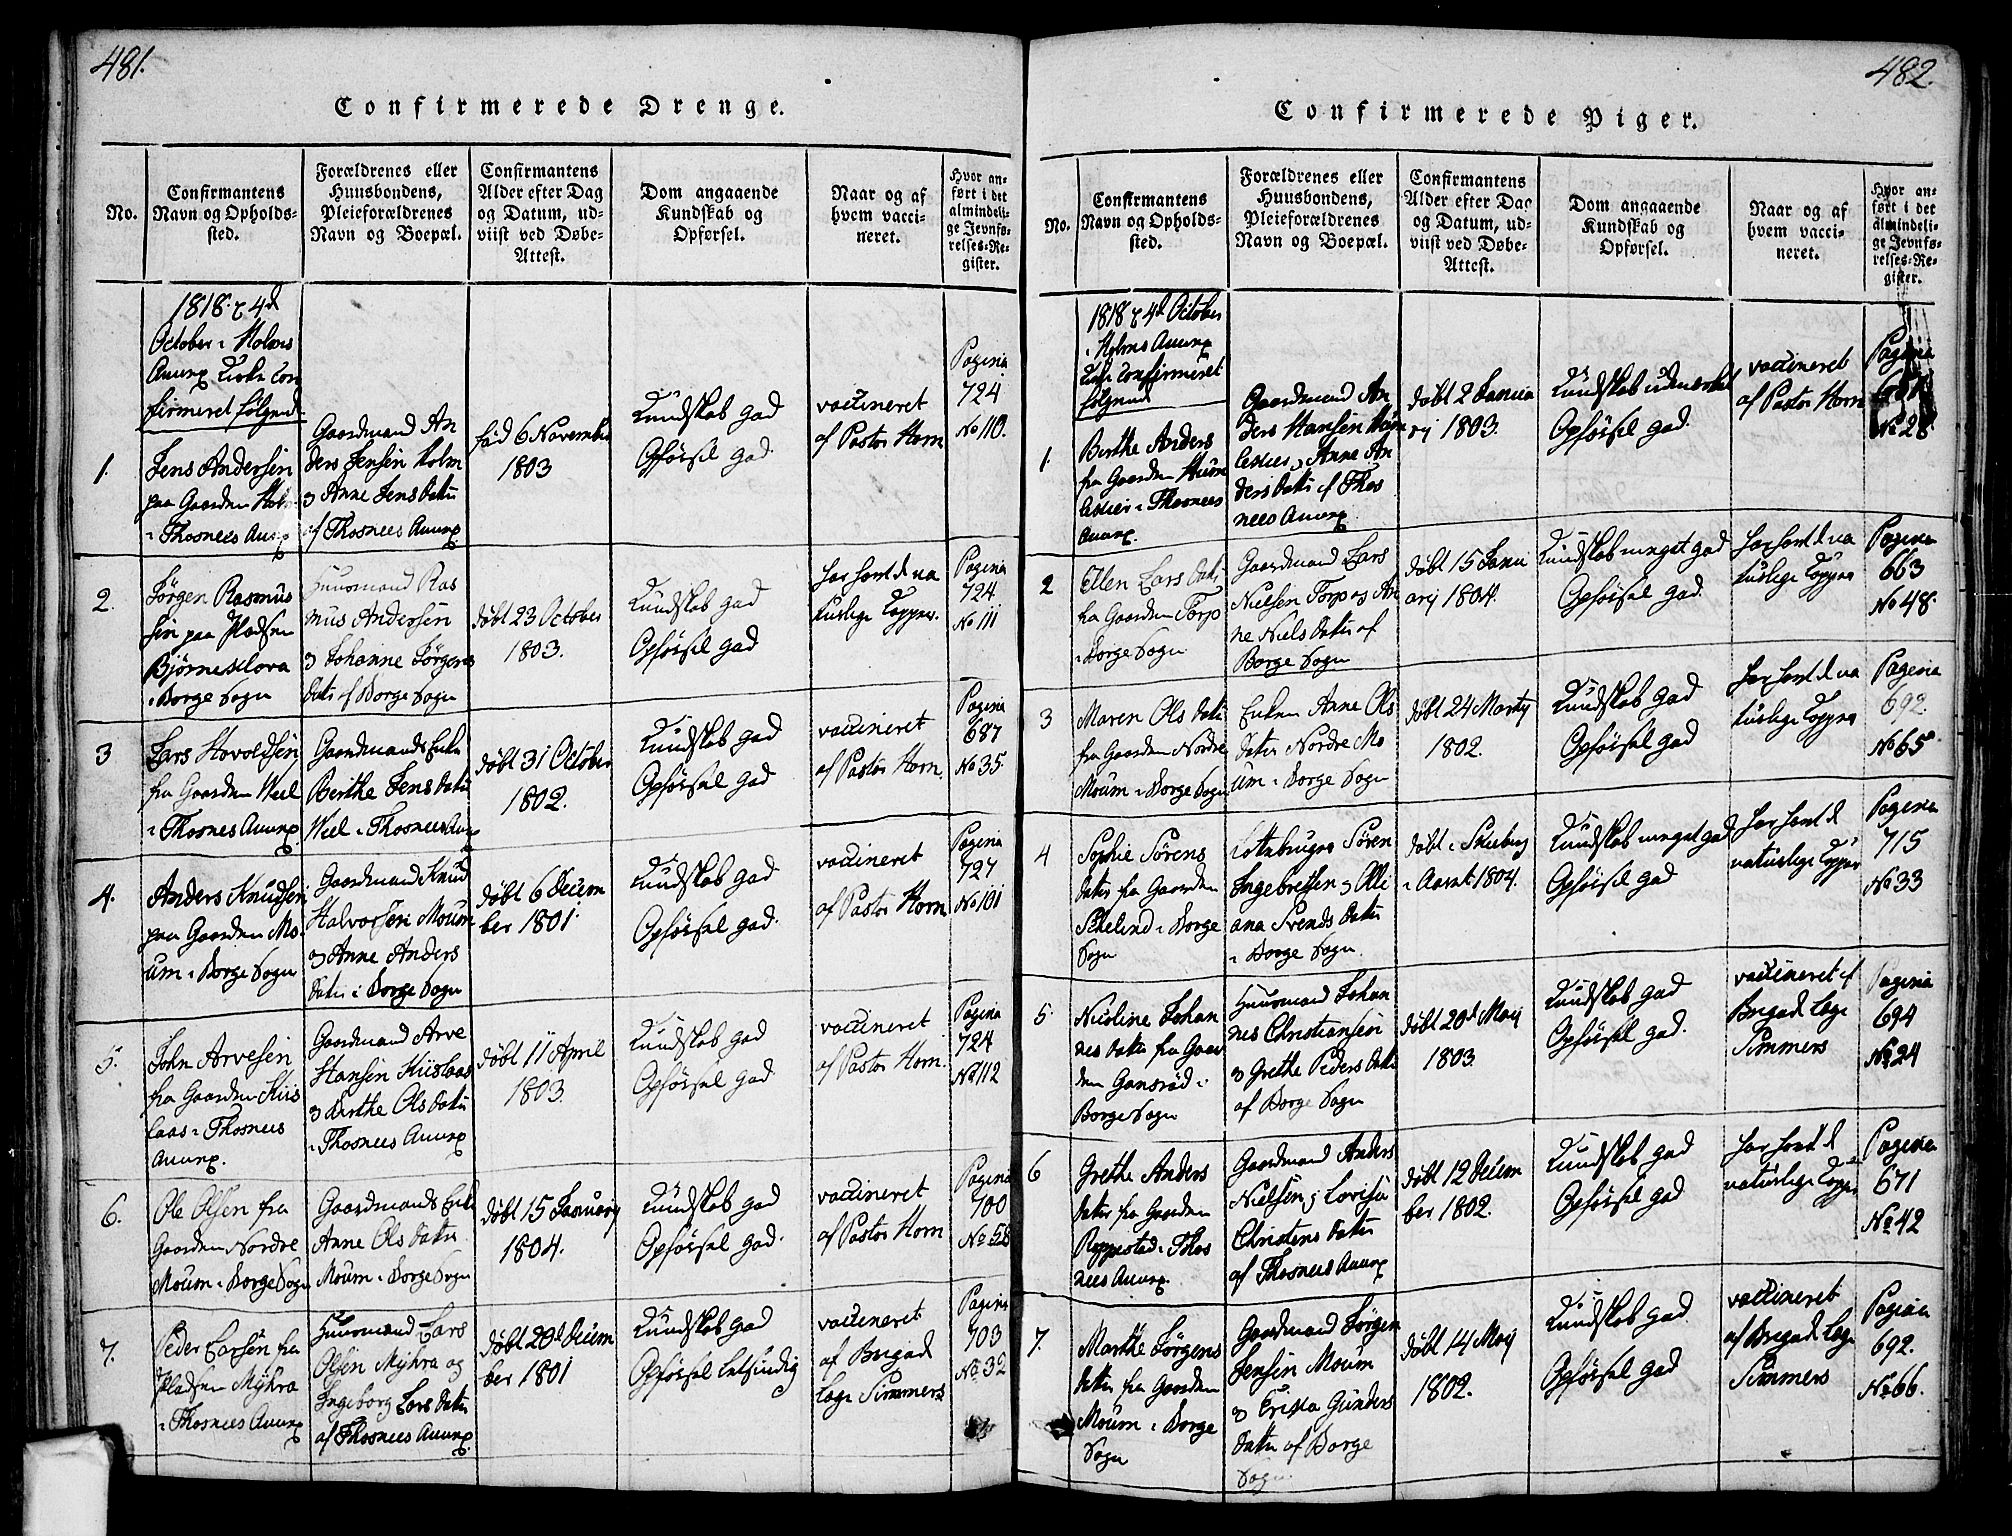 481.
Confirmerede Drenge.
No.
Confirmantens
Navn og Opholds-
sted.
Forældrenes eller
Huusbondens,
Pleieforældrenes
Navn og Boepæl.
Confirmantens
Alder efter Dag
og Datum, ud-
viist ved Døbe-
Attest.
Dom angaaende
Kundskab og
Opførsel.
Naar og af
hvem vacci-
neret.
Hvor an-
ført i det
almindeli-
ge Jevnfø-
relses-Re-
gister.
1818 d 4d
October i Holms
Annex Kirke Con
firmeret følgende
1.
Jens Andersen
paa Gaarden Holm
i Thosnees Annex
Gaardmand An
ders Jensen Holm
og Anne Jens Datter
af Thosnees Annex
fød 6 November
1803
Kundskab god
Opførsel god.
vaccineret
af Pastor Horn
Pagina
724
No 110.
2.
Jørgen Rasmus
sen paa Pladsen
Bjørneklova
i Borge Sogn
Huusmand Ras
mus Andersen
og Johanne Jørgens
datter af Borge Sogn
døbt 23 October
1803.
Kundskab god
Opførsel god
har havt de na
turlige Copper.
Pagina
724
No 111
3
Lars Havoldsen
fra Gaarden Weel
i Thosnes Annex
Gaardmands Enke
Berthe Jens Datter
Weel i Thosnees Annex
døbt 31 October
1802.
Kundskab god
Opførsel god
vaccineret
af Pastor Horn.
Pagina
687
No 35.
4.
Anders Knudsen
paa Gaarden Mo-
um i Borge Sogn
Gaardmand Knud
Halvorsen Moum
og Anne Anders
datter i Borge Sogn
døbt 6 Decem
ber 1801.
Kundskab god
Opførsel god.
vaccineret
af Pastor Horn
Pagina
727
No 101
5.
John Arvesen
fra Gaarden Kiis
laas i Thosnees
Annex.
Gaardmand Arve
Hansen Kiislaas
og Berthe Ols datter
i Thosnees Annex
døbt 11 April
1803.
Kundskab god
Opførsel god
vaccineret
af Pastor Horn.
Pagina
724
No 112
6.
Ole Olsen fra
Gaarden Nordre
Moum i Borge Sogn
Gaardmands Enke
Anne Ols datter
Moum i Borge Sogn
døbt 15 Januarij
1804.
Kundskab god
Opførsel god.
vaccineret
af Pastor Horn
Pagina
700
No 58
7.
Peder Larsen fra
Pladsen Myhra
i Thosnees Annex
Huusmand Lars
Olsen Myhra og
Ingeborg Lars datter
af Thosnees Annex
døbt 20de Decem
ber 1801
Kundskab god
Opførsel letsindig
vaccineret
af Brigad
Læge Simmers
Pagina
703
No 32
482.
Confirmerede Piger.
No.
Confirmantens
Navn og Opholds-
sted.
Forældrenes eller
Huusbondens,
Pleieforældrenes
Navn og Boepæl.
Confirmantens
Alder efter Dag
og Datum, ud-
viist ved Døbe-
Attest.
Dom angaaende
Kundskab og
Opførsel.
Naar og af
hvem vacci-
neret.
Hvor an-
ført i det
almindeli-
ge Jevnfø-
relses-Re-
gister.
1818 d 4d October
i Holms Annex
Kirke Confirmeret
følgende
1.
Berthe Anders
fra Gaarden
i Thosnees
Annex.
Gaardmand An
ders Hansen
og Anne An
ders datter af Thos
nees Annex.
døbt 2 Janua
rij 1803.
Kundskab udmærket
Opførsel god.
vaccineret
af Pastor Horn
Pagina
No 28
2
Ellen Lars datter
fra Gaarden Torp
i Borge Sogn
Gaardmand Lars
Nielsen Torp og An
ne Niels datter af
Borge Sogn
døbt 15 Janu
arij 1804.
Kundskab meget god
Opførsel god.
har havt de na
turlige Copper
Pagina
663
No 48.
3
Maren Ols datter
fra Gaarden Nordre
Moum i Borge Sogn
Enken Anne Ols
datter Nordre Mo
um i Borge Sogn
døbt 24 Martij
1802.
Kundskab god
Opførsel god
har havt de na
turlige Copper
Pagina
692
No 65
4
Sophie Sørens
datter fra Gaarden
i Borge
Sogn
Søren
Ingebretsen og Oli
ana Svends datter
i Borge Sogn.
døbt i Skieberg
i Aaret 1804.
Kundskab meget god
Opførsel god
har havt de
naturlige Copper
Pagina
715
No 33
5.
Nicoline Johan
nes datter fra Gaar
den Gansrød i
Borge Sogn
Huusmand Johan
nes Christiansen
og Grethe Peders datter
af Borge Sogn
døbt 20d Maij
1803.
Kundskab god
Opførsel god.
vaccineret af
Brigad Læge
Simmers
Pagina
694
No 24
6
Grethe Anders
datter fra Gaarden
Roppestad i Thos
nees Annex.
Gaardmand Anders
Nielsen og Lovisa
Christens datter
af Thosnees Annex
døbt 12 Decem
ber 1802.
Kundskab god
Opførsel god
har havt de
naturlige Copper
Pagina
671
No 42
7.
Marthe Jørgens
datter fra Gaarden
Moum i Borge
Sogn
Gaardmand Jørgen
Jensen Moum
og Crista Gunders
datter af Borge
Sogn.
døbt 14 Maij
1802.
Kundskab god
Opførsel god
vaccineret
af Brigad Læge
Simmers
Pagina
692.
No 66.